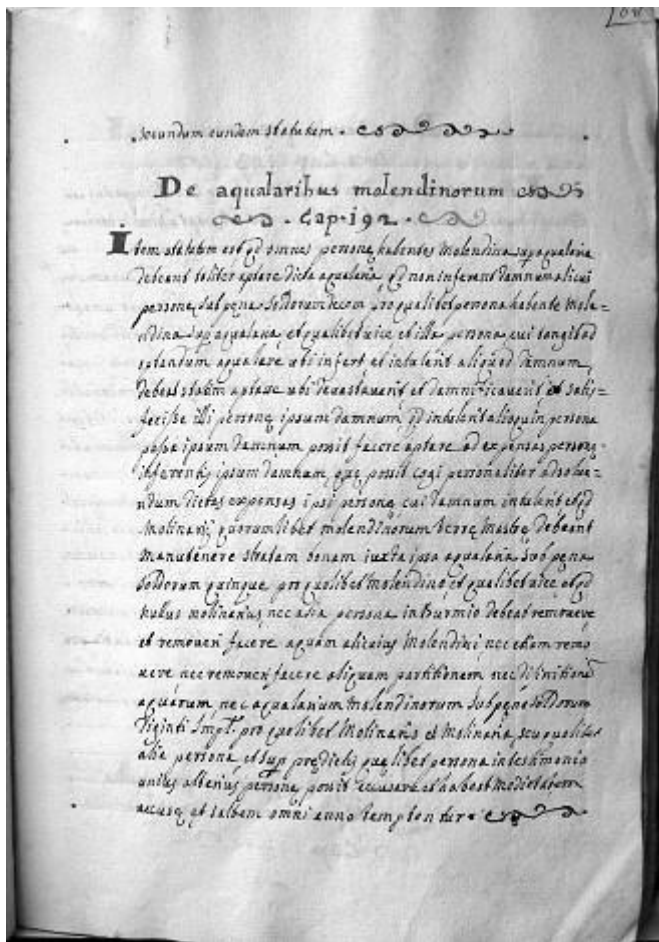 secundum eundem statutum.
De aqualaribus molendinorum
Cap. 192.
Item statutum est qd omnes personę habentes Molendina sup aqualaria
debeant taliter aptare dicta aqualaria, qd non inferant damnum alicui
personę, sub pęna soldorum decem pro qualibet persona habente mole=
ndina sup aqualaria, et qualibet vice et illa persona, cui tangit ad
aptandum aqualare ubi infert et intulerit aliquod damnum,
debeat statim aptare ubi devastaverit et damnificaverit et satis=
fecisse illi personę ipsum damnum qd intulerit alioquin persona
passa ipsum damnum possit facere aptare ad expensas personę
inferentis ipsum damnum, quę possit cogi personaliter ad solve=
ndum dictas expensas ipsi personę cui damnum intulerit et qd
Molinarij quorumlibet molendinorum terrę Mastrę debeant
manutenere stratam bonam iuxta ipsa aqualaria sub pęna
soldorum quinque pro quolibet molendino et qualibet vice, et qd
nullus molinarius, nec alia persona in Burmio debeat removere
et removeri facere aquam alicuius Molendini, nec etiam remo
vere nec removeri facere aliquam partitionem nec
aquarum, nec aqualarium molendinorum sub pęna soldorum
viginti Impl. pro quolibet Molinario et Molinaria, seu qualibet
alia persona et sup prędictis quęlibet persona in testimonio
unius alterius personę possit accusare et habeat medietatem
accusę et salvem omni anno